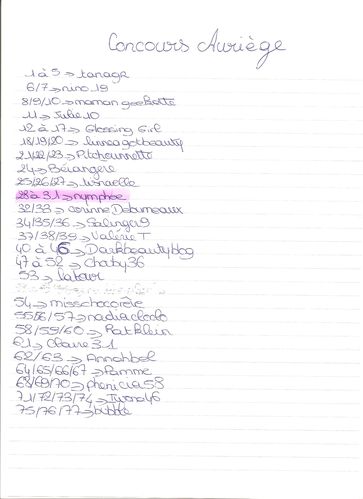 Concours Auriège
1 à 5 → tanage
6/7 → nino 19
8/9/10 → maman geekette
11 → Julie 10
12 à 17 → Glossing Girl
18/19/20 → lunea got beauty
21/22/23 → Pitchounnette
24 → Bérangère
25/26/27 →
28 à 31 → nymphee
32/33 → corinne Debumeaux
34/35/36 → Salinger9
37/38/39 → Valérie T
40 à 46 → Darkbeautyblog
47 à 52 → Chaby36
53 → latour
54 → misschocgière
55/56/57 → nadiaclodo
58/59/60 → Patklein
61 → Claire 31
62/63 → Annahbel
64/65/66/67 → Pamme
68/69/70 → phenicia58
71/72/73/74 → 46
75/76/77 →